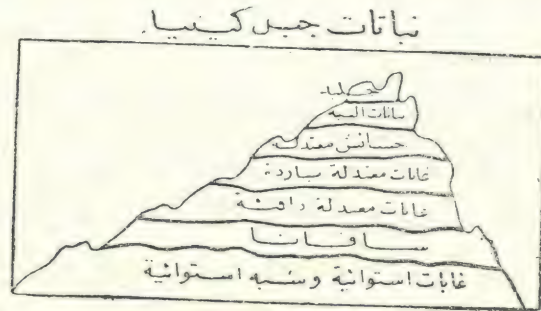 نباتات جبل كينيا
جليد
نباتات البيه
حشائش معتدلة
غابات معتدلة باردة
غابات معتدلة دافئة
سافانا
غابات استوائية وشبه استوائية